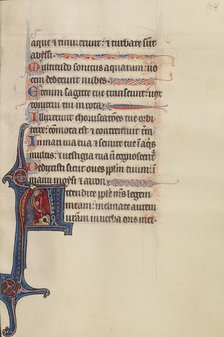 aque et timuerunt : et turbate sunt
abyssi
Multitudo sonitus aquarum : vo
cem dederunt nubes
Etenim sagitte tue transeunt : vox
tonitrui tui in rota
Illuxerunt choruscationes tue orbi
terre : commota est et contremuit terra
In mari via tua et semite tue in aquis
multis : et vestigia tua non cognoscent
Deduxisti sicut oves populum tuum : in
manu moysi et aaron
Attendite popule meus legem
meam : inclinate aurem
vestram in verba oris mei